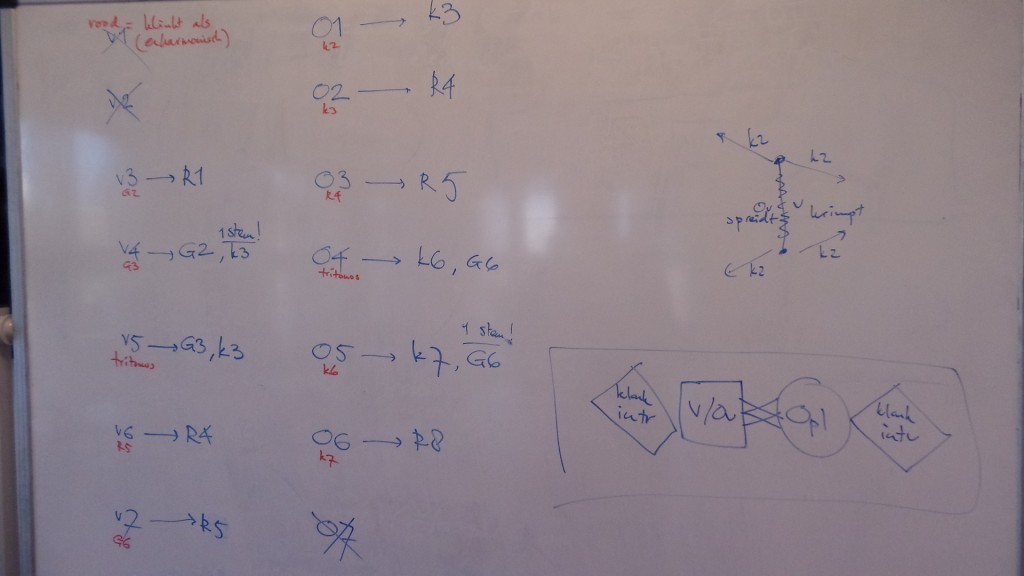 rood = klinkt als
(enharmonisch)
v1
v2
v3 → R1
G2
v4 → G2, k3
1 stem!
G3
v5 → G3, k3
tritonus
v6 → R4
R5
v7 → R5
G6
O1 → k3
k2
O2 → R4
k3
O3 → R5
R4
O4 → k6, G6
tritonus
O5 → k7, G6
1 stem!
k6
O6 → R8
k7
O7
k2
k2
Ov
v
spreidt
krimpt
k2
k2
klank
intr
v/ov
Opl
klank
intv